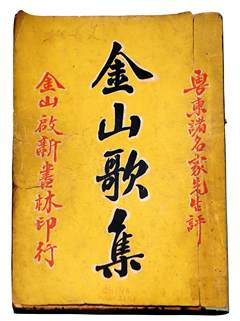 粤東諸名家先生評
金山歌集
金山啟新書林印行